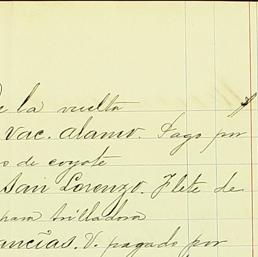 de la vuelta
vac. alamo. Pago por
de coyote
San Lorenzo. Flete de
para trilladora
ancías. V. pagado por